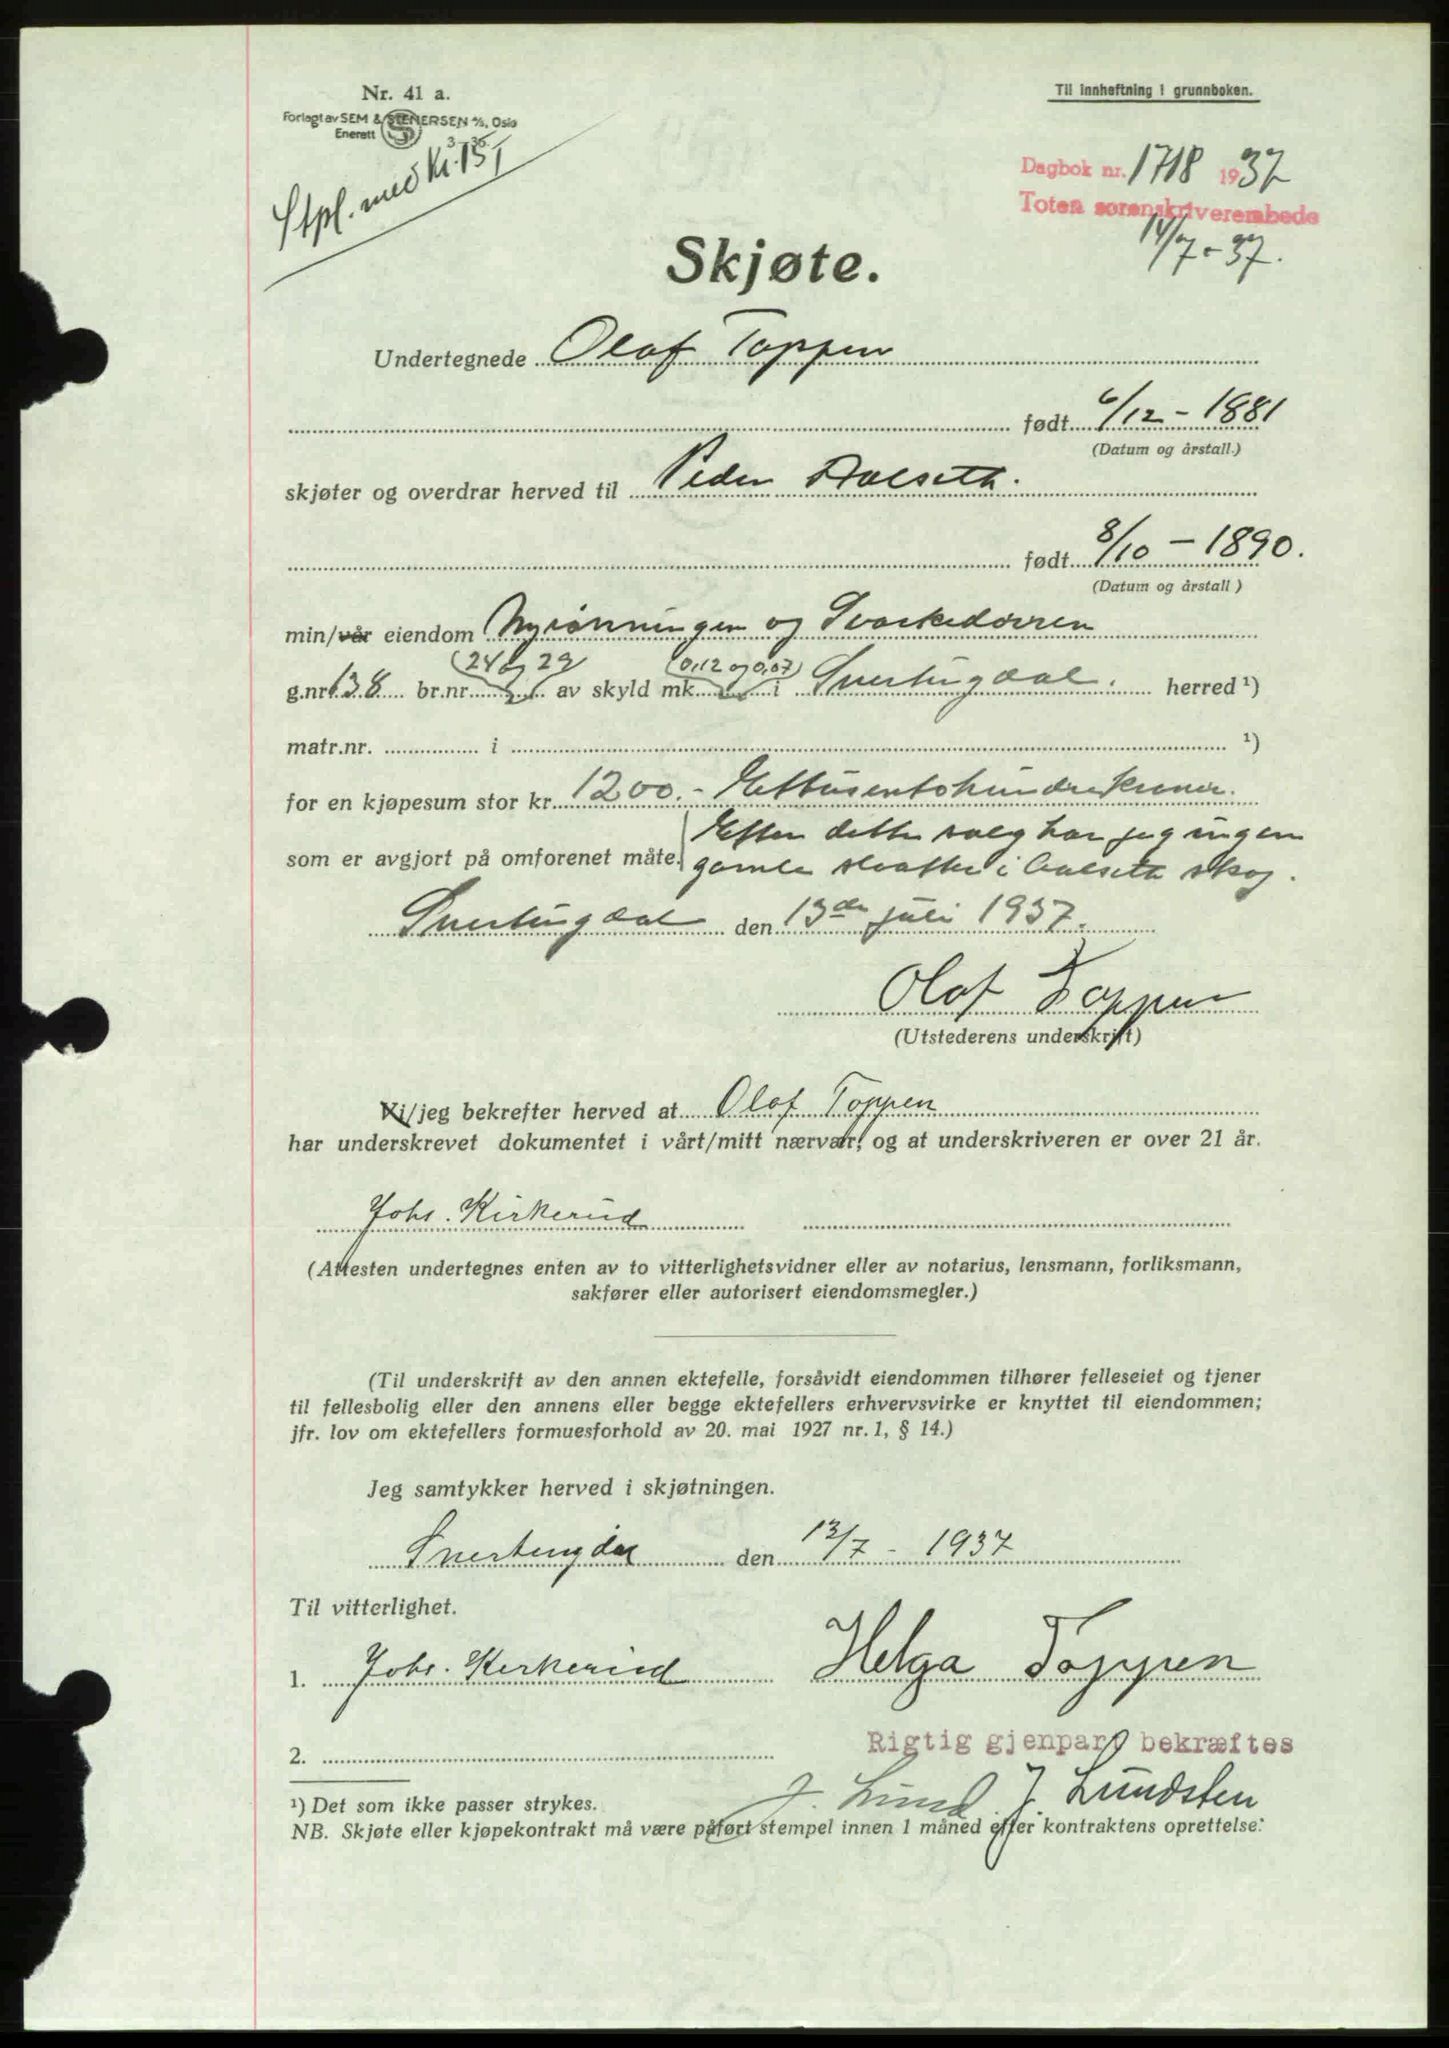 Nr. 41 a.
Forlagt av SEM & STENERSEN A/S, Oslo
Enerett
3 - 36.
Stpl. med Kr. 15
Til innheftning i grunnboken.
Dagbok nr. 1718 1937
Toten sorenskriverembede
14/7 - 37.
Skjøte.
Undertegnede Olaf Toppen
født 6/12 - 1881
(Datum og årstall.)
skjøter og overdrar herved til Peder Aalseth.
født 8/10 - 1890.
(Datum og årstall )
min/vår eiendom Nyrønningen og
(24 og 29 (0,12 og 0,07)
g.nr. 138 br.nr. av skyld mk. i Snertingdal. herred ¹)
matr.nr. i ¹)
for en kjøpesum stor kr. 1200.- Ettusentohundrekroner.
som er avgjort på omforenet måte. Efter dette salg har jeg ingen
gamle i Aalseth skog.
Snertingdal den 13de juli 1937.
Olaf Toppen
(Utstederens underskrift)
Vi/jeg bekrefter herved at Olaf Toppen
har underskrevet dokumentet i vårt/mitt nærvær, og at underskriveren er over 21 år.
Johs. Kirkerud
(Attesten undertegnes enten av to vitterlighetsvidner eller av notarius, lensmann, forliksmann,
sakfører eller autorisert eiendomsmegler.)
(Til underskrift av den annen ektefelle, forsåvidt eiendommen tilhører felleseiet og tjener
til fellesbolig eller den annens eller begge ektefellers erhvervsvirke er knyttet til eiendommen;
jfr. lov om ektefellers formuesforhold av 20. mai 1927 nr. 1, § 14.)
Jeg samtykker herved i skjøtningen.
Snertingdal den 13/7 - 1937
Til vitterlighet.
1. Johs. Kirkerud Helga Toppen
2.
Rigtig gjenpart bekræftes
J. Lund. J. Lundsten
¹) Det som ikke passer strykes.
NB. Skjøte eller kjøpekontrakt må være påført stempel innen 1 måned efter kontraktens oprettelse.